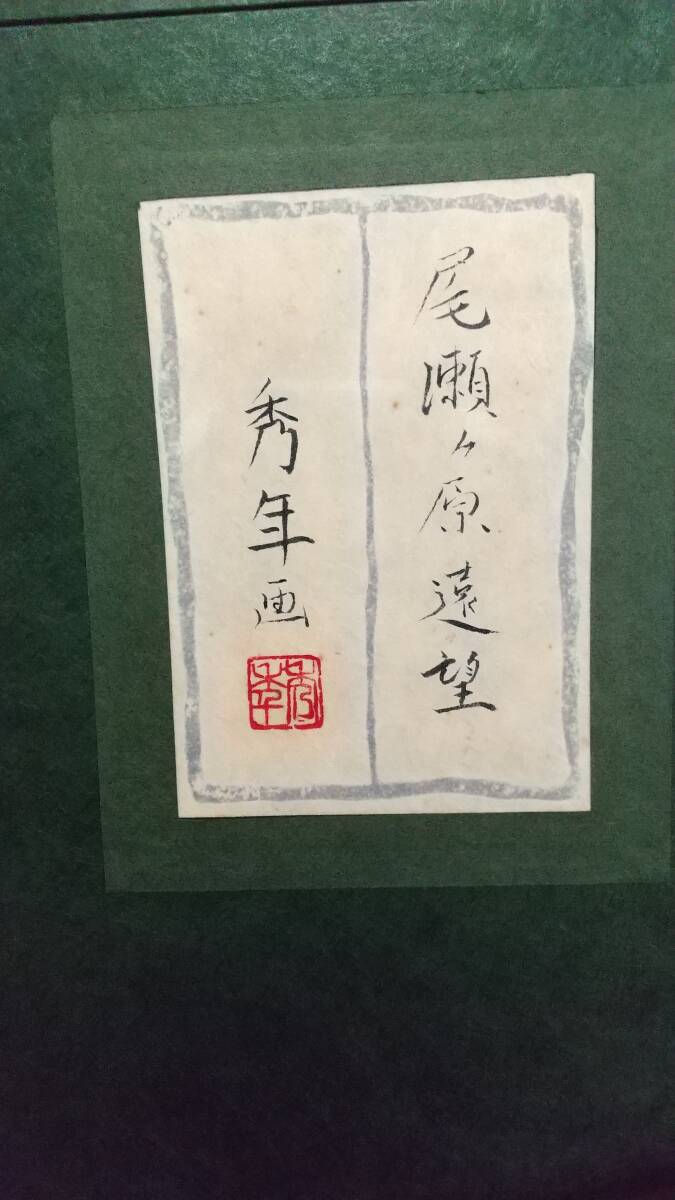 尾瀬ヶ原遠望
秀年画
秀年